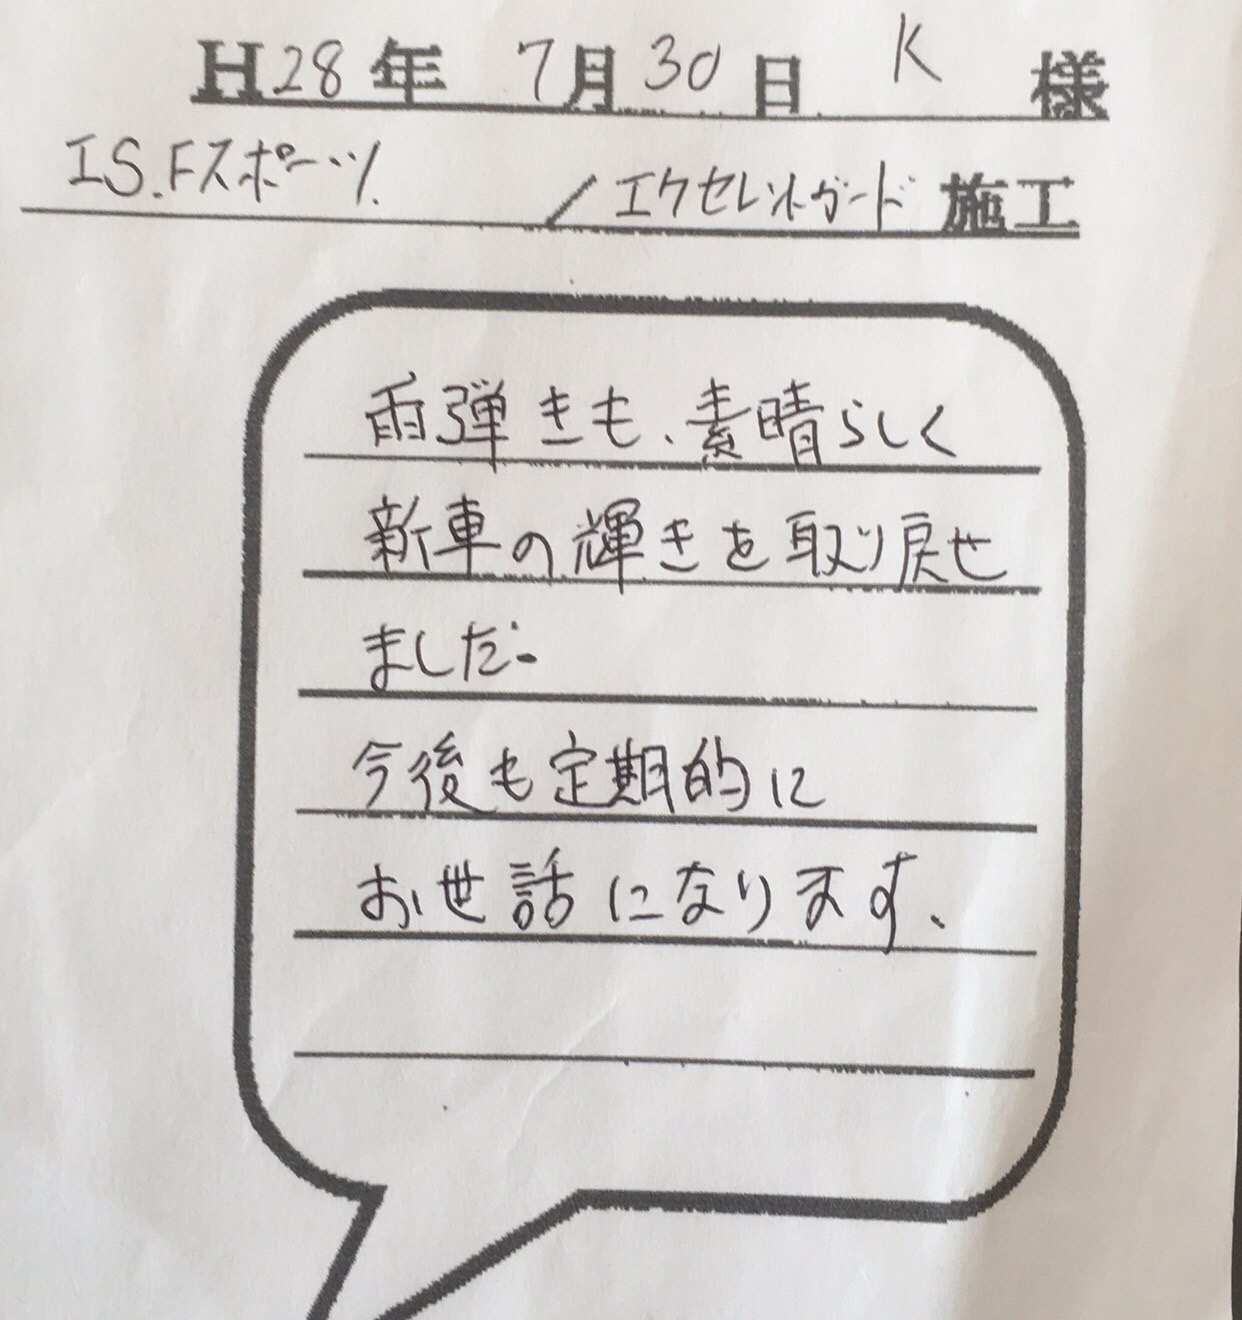 H28年 7月30日 K 様
IS.Fスポーツ / エクセレントガード 施工
雨弾きも、素晴らしく
新車の輝きを取り戻せ
ました。
今後も定期的に
お世話になります、